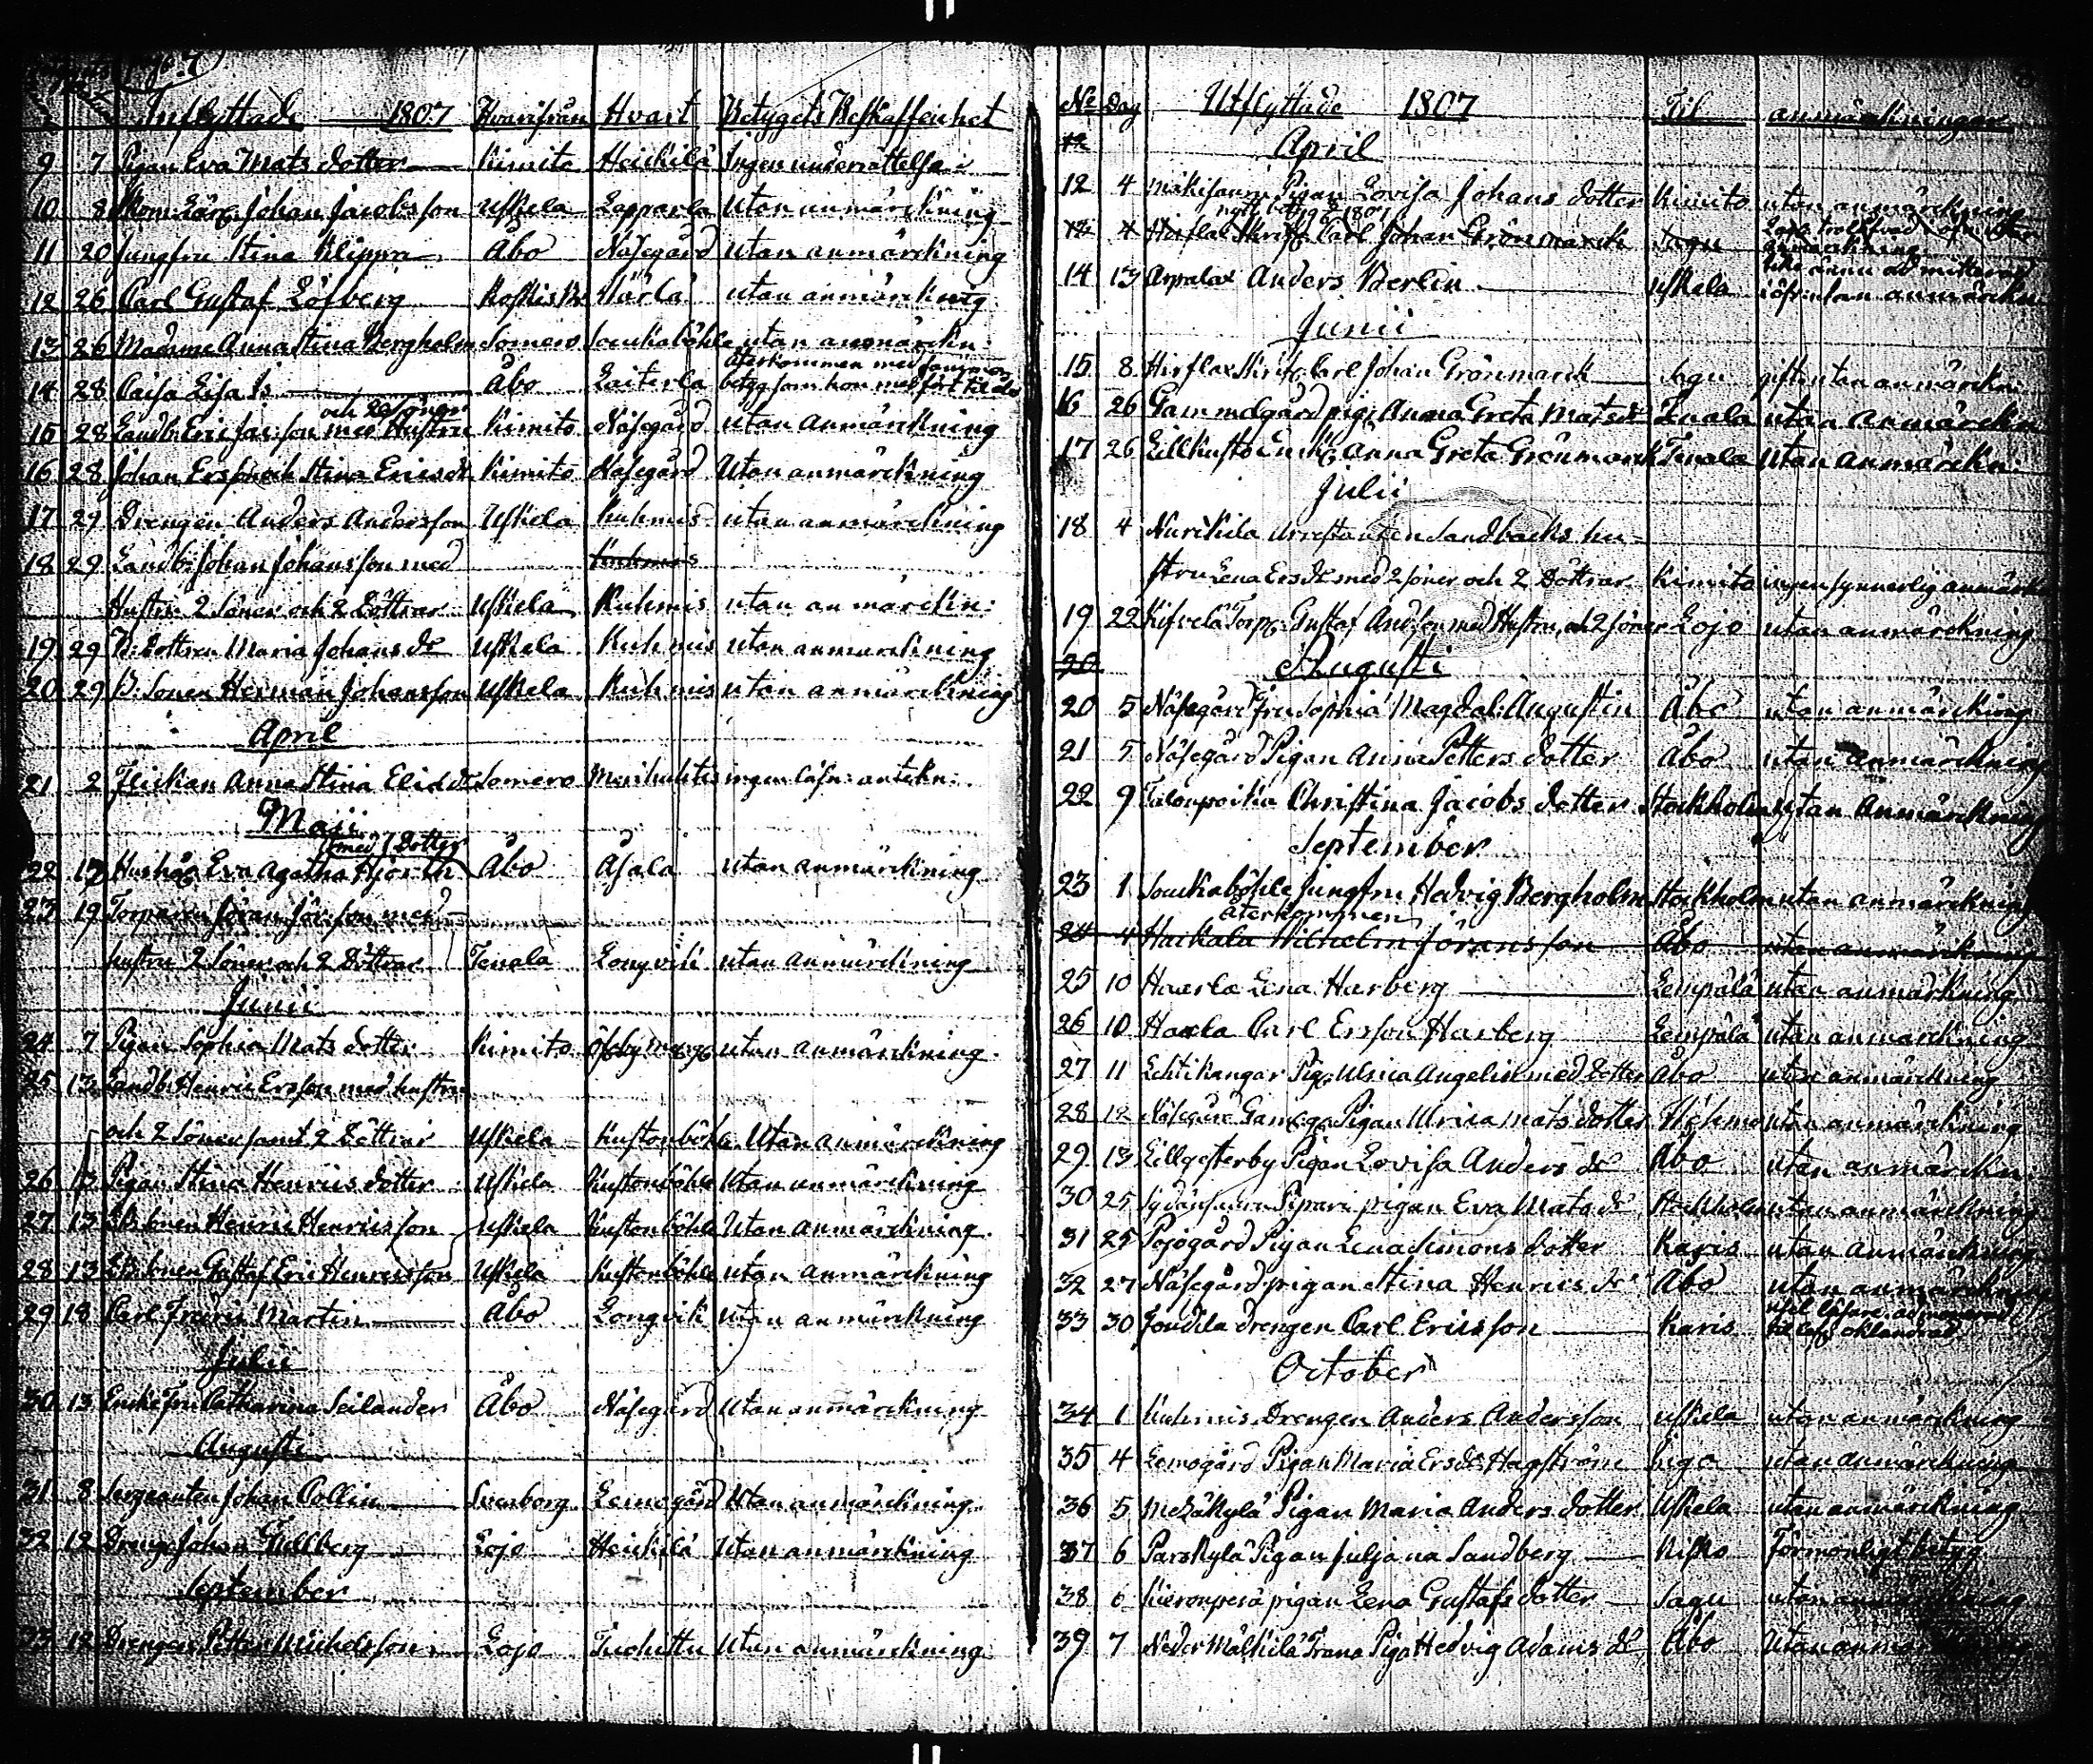 Inflyttade 1807 Hvarifrån Hvart Betygets Beskaffenhet
9 7 Pigan Eva Mats dotter Kimito Heickilä Ingen underrättelse
10 8 Johan Jacobsson Uskela Lapparla utan anmärckning
11 20 Jungfru Stina Klippra Åbo Näsegård utan anmärckning
12 26 Carl Gustaf Löfberg Koskis Härlä utan anmärckning
13 26 Madame Anna Stina Bergholm Somero Souckaböhle utan anmärckn:
återkommen med samma
14 28 Caisa Lisa Is Åbo Laiterla betyg som hon medfört til
och 2 Söner
15 28 Landb: Eric Jac:son med Hustru Kimito Näsegård utan anmärckning
16 28 Johan Ersson och Stina Ericsdr Kimito Näsegård Utan anmärckning
17 29 Drengen Anders Andersson Uskela Kuhmis utan anmärckning
18 29 Landb: Johan Johansson med Kuhmis
Hustru 2 Söner och 2 Döttrar Uskela Kuhmis utan anmärckn:
19 29 B: dottren Maria Johans dr Uskela Kuhmis utan anmärckning
20 29 B: Sonen Herman Johansson Uskela Kuhmis utan anmärckning
April
21 2 Flickan Anna Stina Elisdr Somero ingen läsn: antekn:
Maji
med 1 Dotter
22 17 Hush: Eva Agatha Hjorth Åbo Asala utan anmärckning
23 19 Torparen Jöran Jör:son med
hustru 2 Söner och 2 Döttrar Tenala Longvik utan anmärckning
Junii
24 7 Pigan Sophia Mats dotter Kimito utan anmärckning
25 13 Landb: Henric Ersson med hustru
och 2 Söner samt 2 Döttrar Uskela Kustonböhle Utan anmärckning
26 13 Pigan Stina Henrics dotter Uskela Kustonböhle Utan anmärckning
27 13 Sonen Henric Henricsson Uskela Kustonböhle Utan anmärckning
28 13 Sonen Gustaf Eric Henricsson Uskela Kustonböhle utan anmärckning
29 18 Carl Martin Åbo Longvik utan anmärckning
Julii
30 13 Enke Fru Catharina Seilander Åbo Näsegård utan anmärckning
Augusti
31 8 Sergeanten Johan Collin Sveaborg Lemogård Utan anmärckning
32 12 Dreng: Johan Gullberg Lojo Heickilä Utan anmärckning
September
33 12 Drengen Petter Michelsson Lojo Tuohittu Utan anmärckning
No Dag Utflyttade 1807 Til anmärckningar
April
12 4 Pigan Lovisa Johans dotter Kimito utan anmärckning
4 Hirslax Skrifv: Carl Johan Grönmarck Sagu
14 13 Arpalax Anders Berlin Uskela utan anmärckn
Junii
15 8 Hirslax Skrifv: Carl Johan Grönmarck Sagu gift utan anmärckn:
16 26 Gammelgård pig: Anna Greta Matsdr Tenala utan anmärckn
17 26 Lillkusto Anna Greta Grönmarck Tenala Utan anmärckn:
Julii
18 4 Nurkkila Arrestanten Sandbacks hu-
stru Lena Ersdr med 2 söner och 2 Döttrar Kimito ingen synnerlig anmärckn
19 22 Kifvelä Torp: Gustaf And:son med Hustru och 2 söner Lojo utan anmärckning
20 Augusti
20 5 Näsegård Fru Sophia Magdal: Augustin Åbo utan anmärckning
21 5 Näsegård Pigan Anna Petters dotter Åbo utan anmärckning
22 9 Talonpoikia Christina Jacobs dotter Stockholm utan anmärckning
September
23 1 Souckaböhle Jungfru Hedvig Bergholm Stockholm utan anmärckning
återkommen
24 4 Haikala Wilhelm Jöransson Åbo utan anmärckning
25 10 Haerla Lena Harberg Lempälä utan anmärckning
26 10 Haerla Carl Ersson Harberg Lempälä utan anmärckning
27 11 Lehtikangar Pig: Ulrica Angelin med dotter Åbo utan anmärckning
28 12 Näsegård Pigan Ulrica Mats dotter utan anmärckning
29 13 Lillgesterby Pigan Lovisa Anders dr Åbo utan anmärckn
30 25 pigan Eva Mats dr Stockholm utan anmärckning
31 25 Pojogård Pigan Lena Simons dotter Karis utan anmärckning
32 27 Näsegård pigan Stina Henrics dr Åbo utan anmärckning
33 30 Joudila drengen Carl Ericsson Karis
October
34 1 Kuhmis Drengen Anders Andersson Uskela utan anmärckning
35 4 Lemogård Pigan Maria Ersdr Hagström Ingo utan anmärckning
36 5 Mezäkylä Pigan Maria Anders dotter Uskela utan anmärckning
37 6 Parskylä Pigan Juljana Sandberg Kisko Förmonligt betyg
38 6 Kieronperä pigan Lena Gustafs dotter Sagu utan anmärckning
39 7 Neder Mälkilä Pig: Hedvig Adams dr Åbo Utan